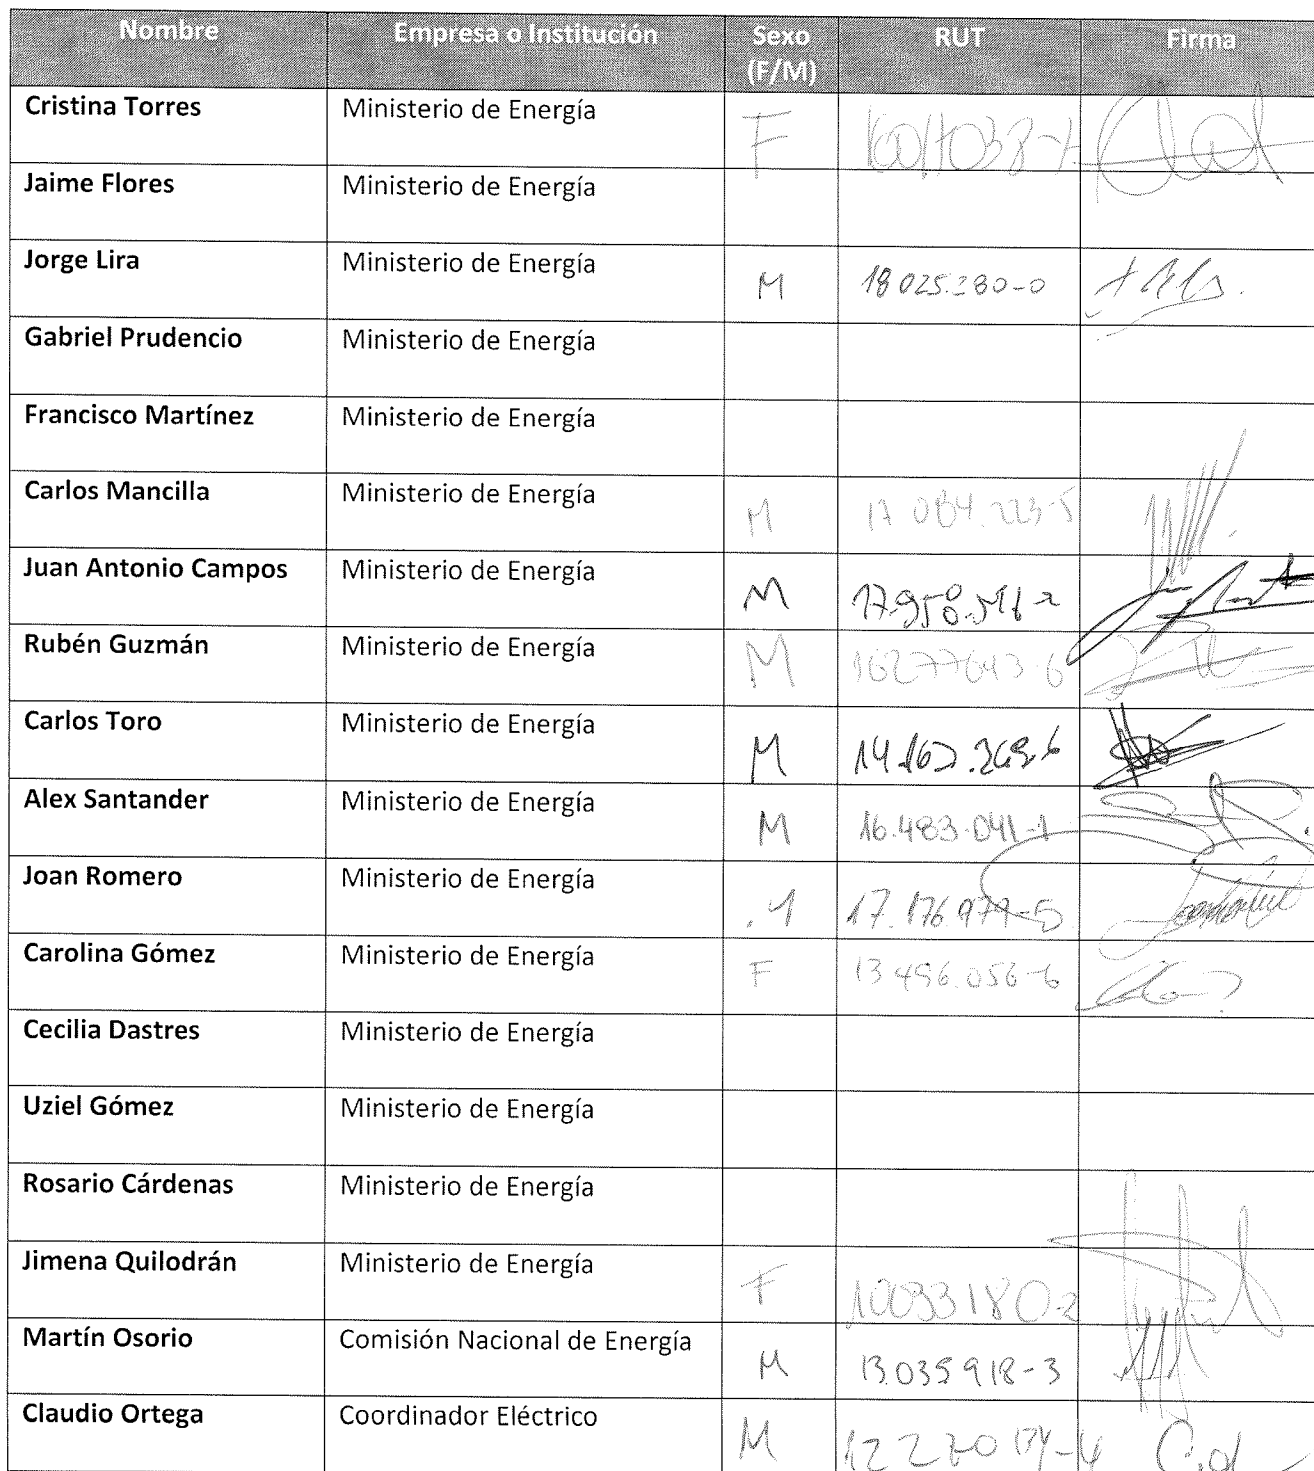 Nombre Empresa o Institución Sexo (F/M) RUT Firma
Cristina Torres Ministerio de Energía F
Jaime Flores Ministerio de Energía
Jorge Lira Ministerio de Energía M 18025.280-0
Gabriel Prudencio Ministerio de Energía
Francisco Martínez Ministerio de Energía
Carlos Mancilla Ministerio de Energía M 17.084.223-5
Juan Antonio Campos Ministerio de Energía M
Rubén Guzmán Ministerio de Energía M 16277643-6
Carlos Toro Ministerio de Energía M
Alex Santander Ministerio de Energía M 16.483.041-1
Joan Romero Ministerio de Energía 17.176.979-5
Carolina Gómez Ministerio de Energía F 13.496.056-6
Cecilia Dastres Ministerio de Energía
Uziel Gómez Ministerio de Energía
Rosario Cárdenas Ministerio de Energía
Jimena Quilodrán Ministerio de Energía F 10033180-2
Martín Osorio Comisión Nacional de Energía M 13.035918-3
Claudio Ortega Coordinador Eléctrico M